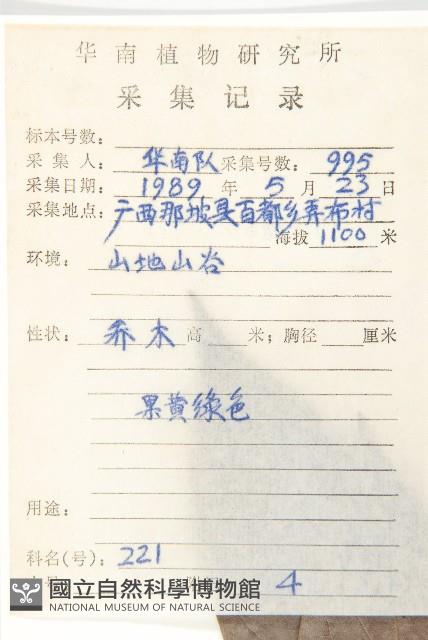 华南植物研究所
采集记录
标本号数：
采集人： 华南队 采集号数： 995
采集日期： 1989 年 5 月 23 日
采集地点： 广西那坡县百都乡弄布村
海拔 1100 米
环境： 山地山谷
性状： 乔木 高 米；胸径 厘米
果黄绿色
用途：
科名(号)： 221
4
國立自然科學博物館
NATIONAL MUSEUM OF NATURAL SCIENCE